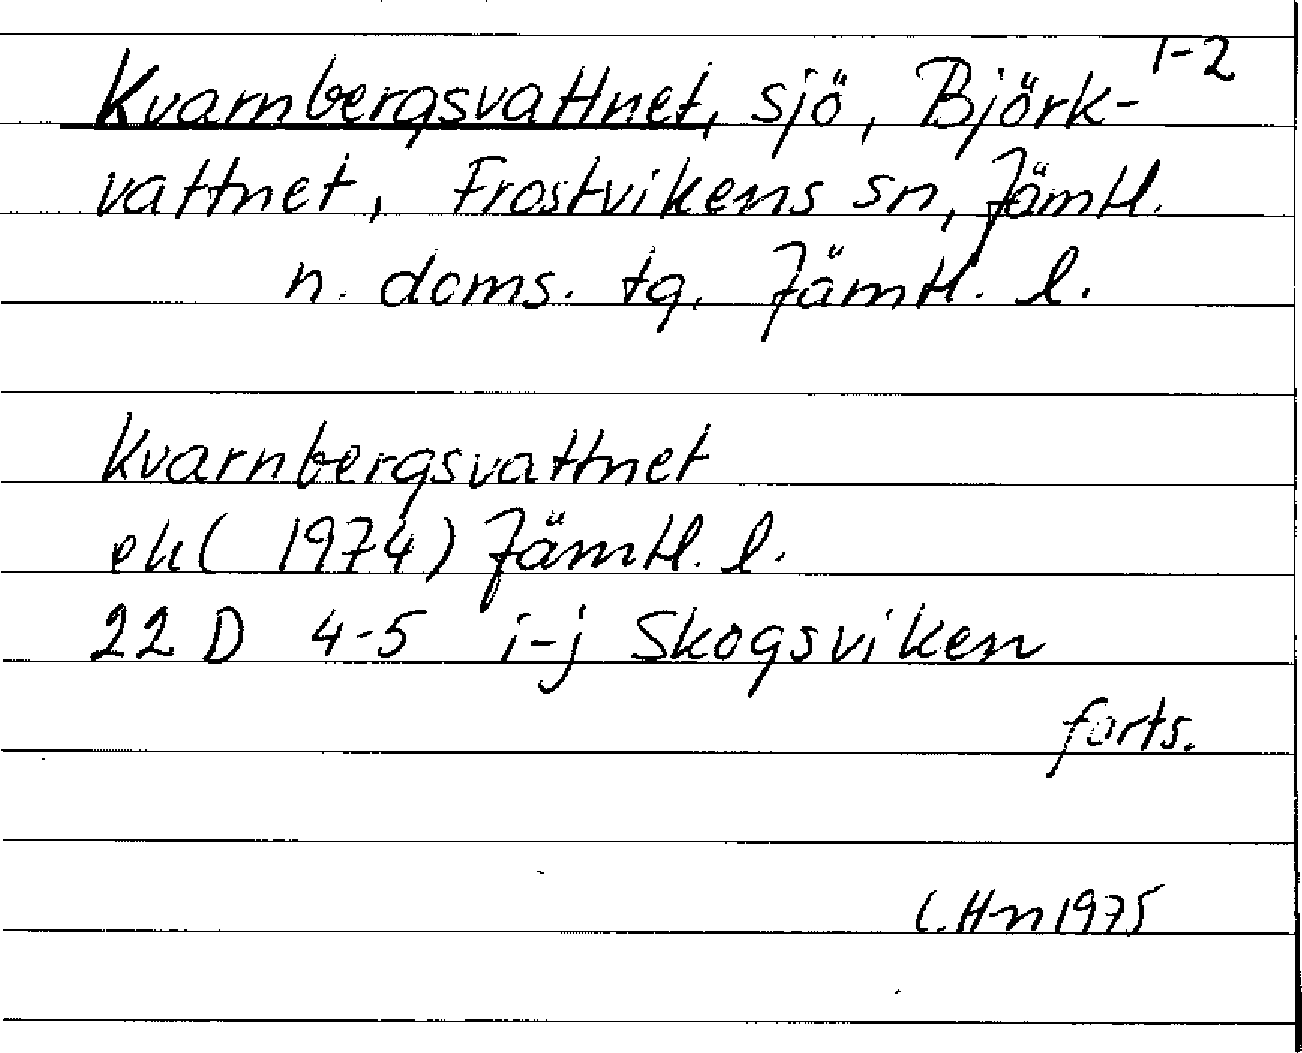 1-2
Kvarnbergsvattnet, sjö, Björk-
vattnet, Frostvikens sn, Jämtl.
n. doms. tg, Jämtl. l.
Kvarnbergsvattnet
ek ( 1974) Jämtl. l.
22 D 4-5 i-j Skogsviken
forts.
C.Hn 1975